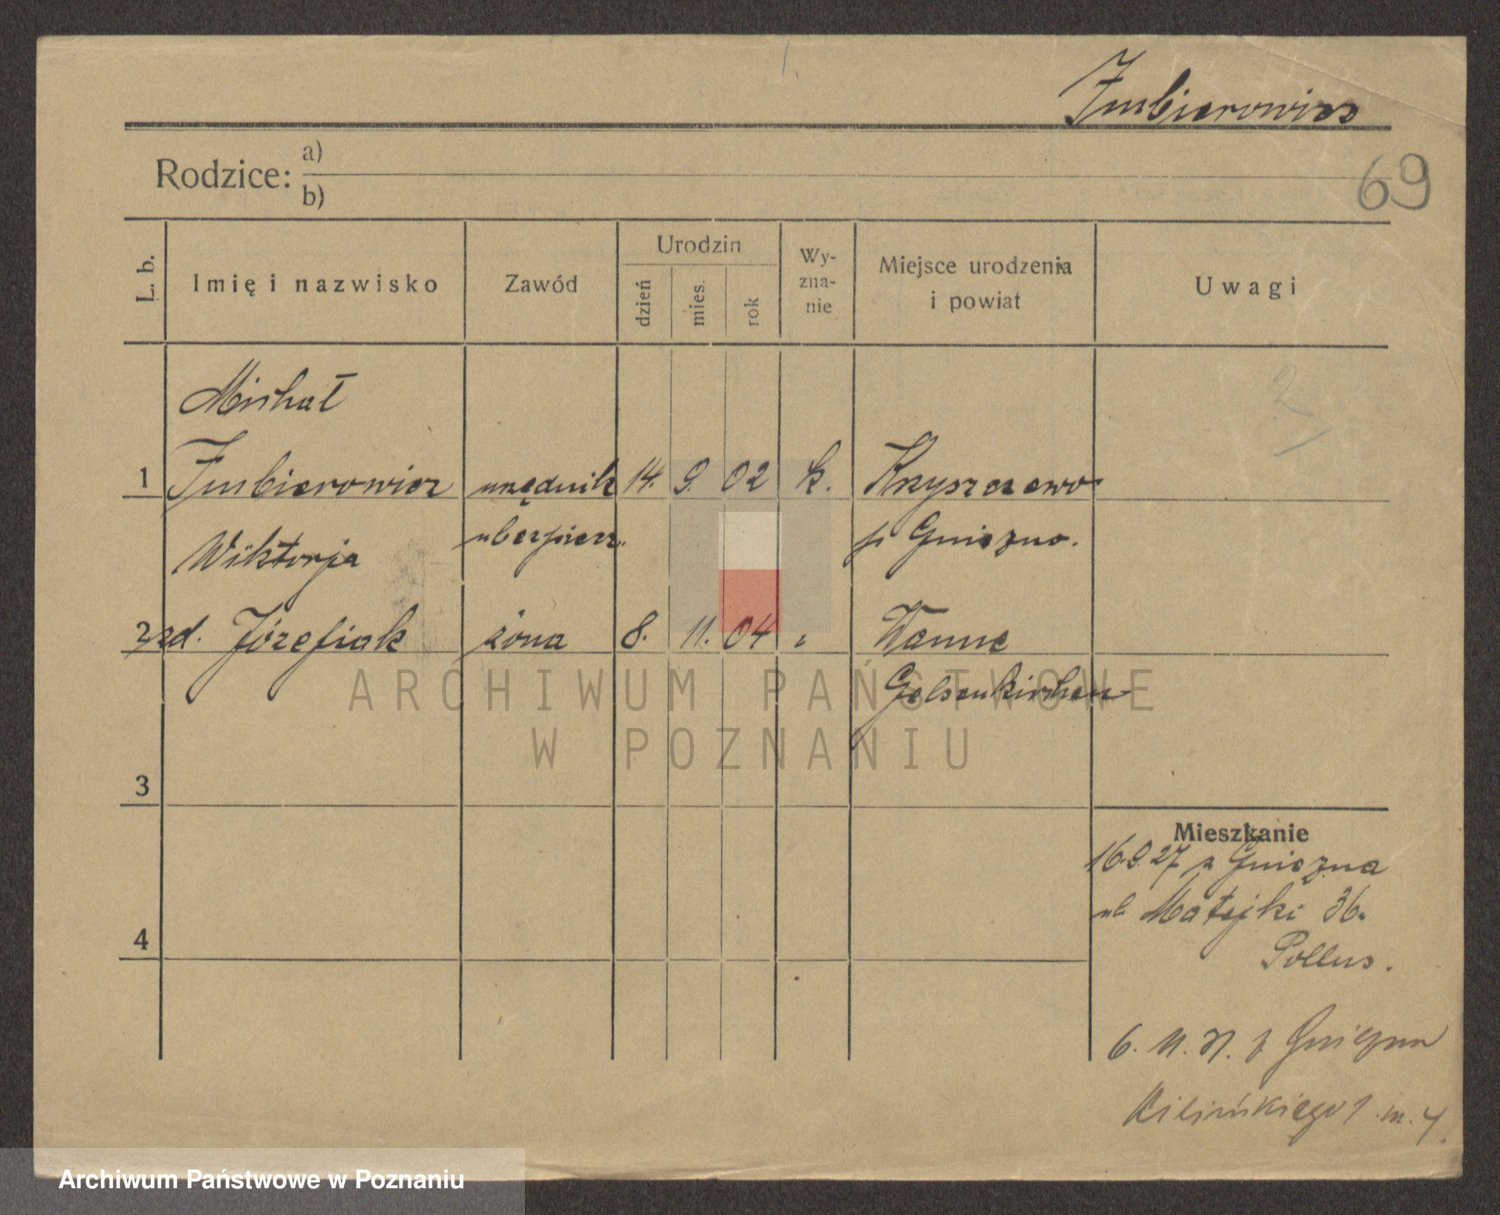 Imbierowicz
69
Rodzice: a)
b)
L. b.
Imię i nazwisko
Zawód
Urodzin
dzień
mies.
rok
Wy-
zna-
nie
Miejsce urodzenia
i powiat
Uwagi
2
Michał
1 Imbierowicz urzędnik 14. 9. 02 k. Krzyszczewo
ubezpiecz. p Gniezno.
Wiktorja
2 zd. Józefiak żona 8. 11. 04 " Wanne
Gelsenkirchen
ARCHIWUM PAŃSTWOWE
W POZNANIU
3
4
Mieszkanie
16 9.27 z Gniezna
ul. Matejki 36.
6. 11. z Gniezna
Kilińskiego 1 m. 4.
Archiwum Państwowe w Poznaniu